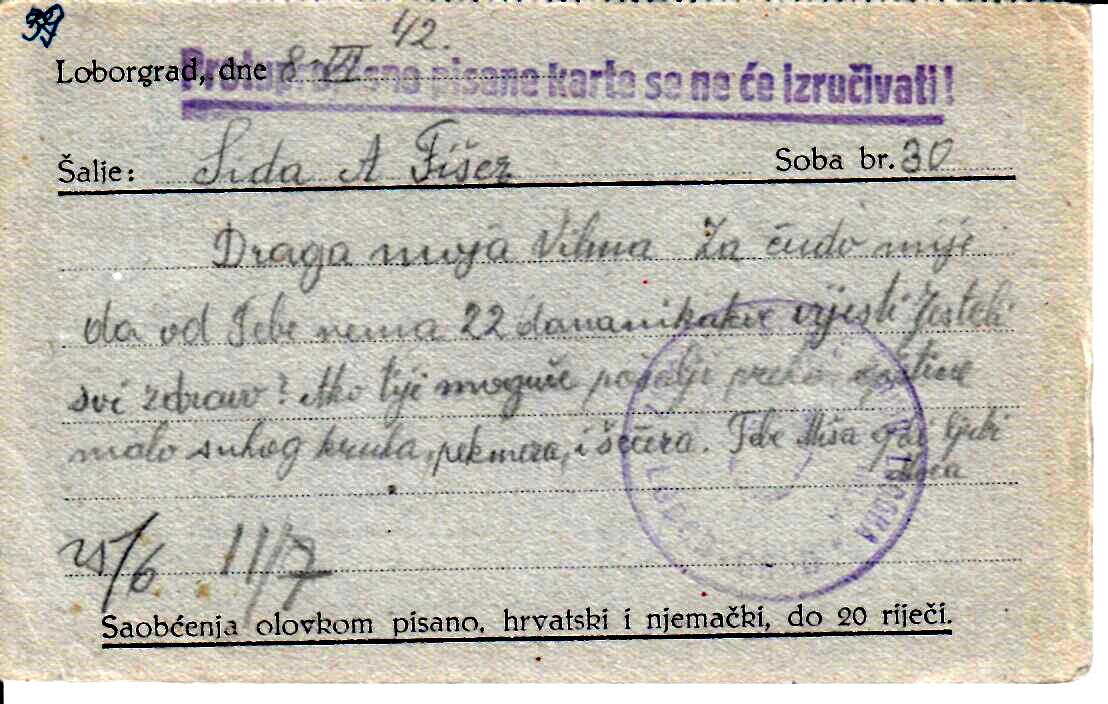 39
42.
Loborgrad, dne 8 VI
Protupropisno pisane karte se ne će izručivati!
Šalje: Sida A Fišer Soba br. 30
Draga moja Vilma Za čudo mije
da od Tebe nema 22 dana nikakve vijesti Jesteli
svi zdravo? Ako tije moguće pošalji preko opštine
malo suhog kruha, pekmeza, i šećera. Tebe Miša ljubi
25/6 11/7
Saobćenja olovkom pisano, hrvatski i njemački, do 20 riječi.